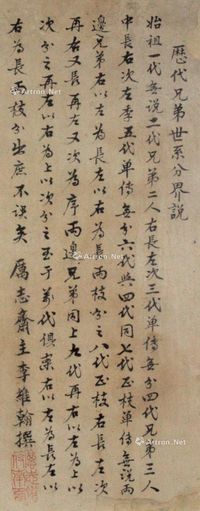 歷代兄弟世系分界說
始祖一代無說二代兄弟二人右長左次三代單傳無分四代兄弟三人
中長右次左季五代單傳無分六代與四代同七代正枝單傳無說兩
邊兄弟右以左為長左以右為長兩枝分之八代正枝右長左次
再右又長再左又次為序兩邊兄弟同上九代再右以左為上以
次分之再左以右為上以次分之至于萬代俱案右以為長左以
右為長正枝分出庶不誤矣 厲志齋主李維翰撰